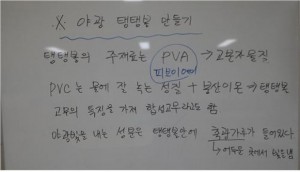 ※ 야광 탱탱볼 만들기
탱탱볼의 주재료는 PVA → 고분자물질
피브이에이
PVC는 물에 잘 녹는 성질 + 붕산이온 → 탱탱볼
고무의 특징을 가져 합성고무라고도 함
야광빛을 내는 성분은 탱탱볼안에 축광가루가 들어있다
↳ 어두운 곳에서